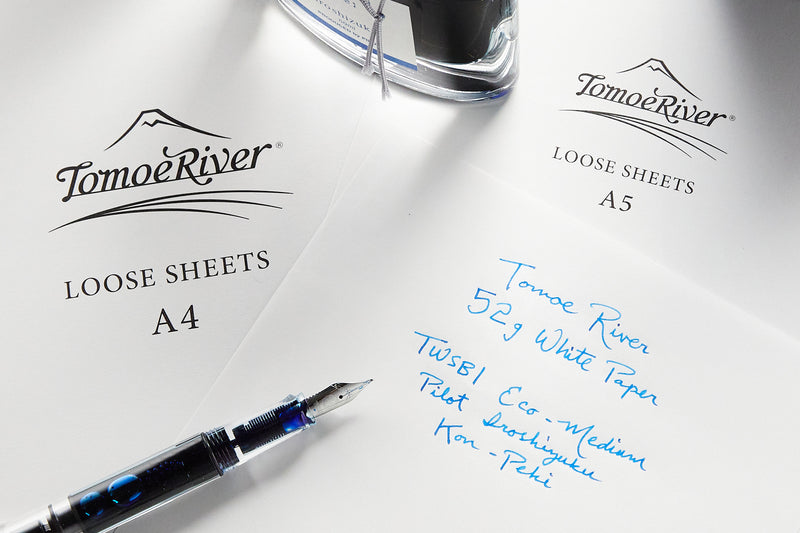 TomoeRiver®
LOOSE SHEETS
A4
TomoeRiver®
LOOSE SHEETS
A5
Tomoe River
52g White Paper
TWSBI Eco-Medium
Pilot Iroshizuku
Kon-Peki